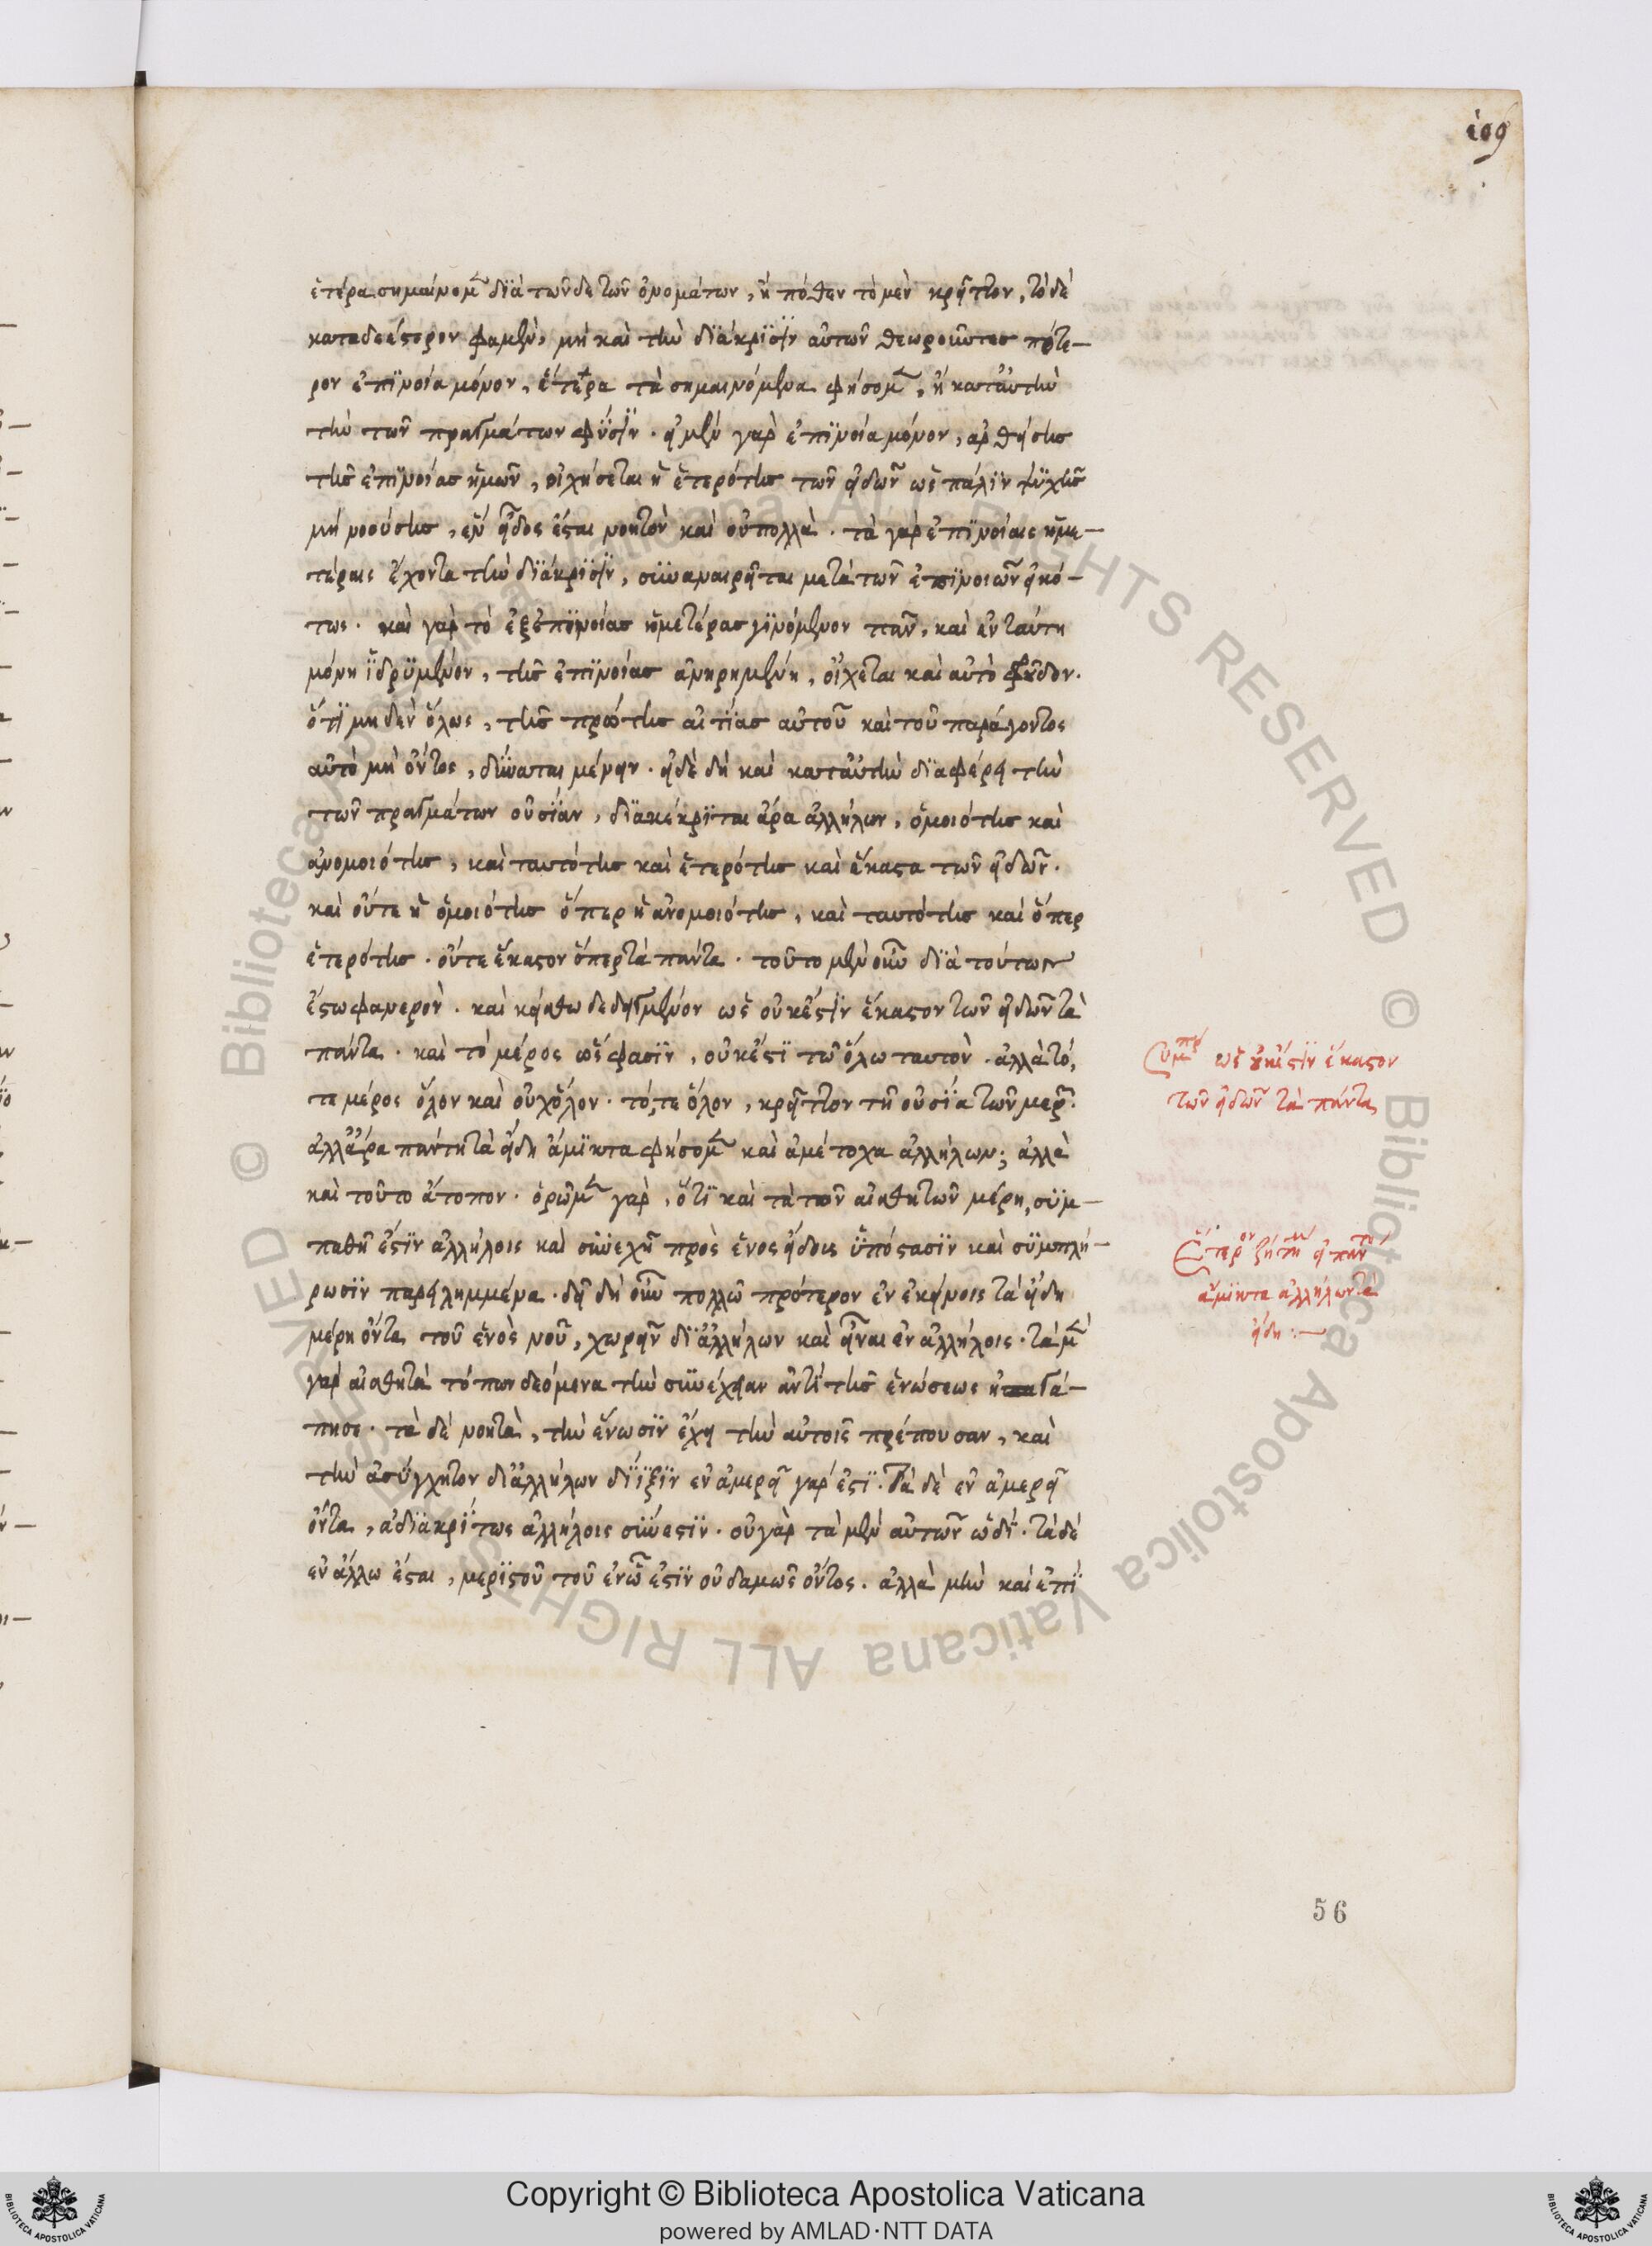 ἑτέρα σημαίνομεν διὰ τῶνδε τῶν ὀνομάτων, ἢ πόθεν τὸ μὲν κρεῖττον, τὸ δὲ
καταδεέστερον φαμὲν, μὴ καὶ τὴν διάκρισιν αὐτῶν θεωροῦντες πότε—
ρον ἐπινοία μόνον, ἕτερα τὰ σημαινόμενα φήσομεν, ἢ κατ' αὐτὴν
τὴν τῶν πραγμάτων φύσιν. εἰ μὲν γὰρ ἐπινοία μόνον, ἀρθείσης
τῆς ἐπινοίας ἡμῶν, οἰχήσεται ἡ ἑτερότης τῶν εἰδῶν ὡς πάλιν ψυχῆς
μὴ νοούσης, ἓν εἶδος ἔσται νοητὸν καὶ οὐ πολλὰ. τὰ γὰρ ἐπινοίαις ἡμε—
τέραις ἔχοντα τὴν διάκρισιν, συναναιρεῖται μετὰ τῶν ἐπινοιῶν εἰκό—
τως. καὶ γὰρ τὸ ἐξ ἐπινοίας ἡμετέρας γινόμενον πᾶν, καὶ ἐν ταύτη
μόνη ἱδρυμένον, τῆς ἐπινοίας ἀνηρημένη, οἴχεται καὶ αὐτὸ φροῦδον.
ὅτι μηδὲν ὅλως, τῆς πρώτης αἰτίας αὐτοῦ καὶ τοῦ παράγοντος
αὐτὸ μὴ ὄντος, δύναται μένειν. εἰ δὲ δὴ καὶ κατ' αὐτὴν διαφέρει τὴν
τῶν πραγμάτων οὐσίαν, διακέκριται ἄρα ἀλλήλων, ὁμοιότης καὶ
ἀνομοιότης, καὶ ταυτότης καὶ ἑτερότης καὶ ἕκαστα τῶν εἰδῶν.
καὶ οὔτε ἡ ὁμοιότης ὅπερ ἡ ἀνομοιότης, καὶ ταυτότης καὶ ὅπερ
ἑτερότης. οὔτε ἕκαστον ὅπερ τὰ πάντα. τοῦτο μὲν οὖν διὰ τούτων
ἔστω φανερὸν. καὶ κείσθω δεδειγμένον ὡς οὐκ ἔστιν ἕκαστον τῶν εἰδῶν τὰ
πάντα. καὶ τὸ μέρος ὥς φασιν, οὐκ ἔστι τῶ ὅλω ταυτὸν. ἀλλὰ τό,
τε μέρος ὅλον καὶ οὐχ ὅλον. τό, τε ὅλον, κρεῖττον τῆ οὐσία τῶν μερῶν.
ἀλλ' ἄρα πάντη τὰ εἴδη ἄμικτα φήσομεν καὶ ἀμέτοχα ἀλλήλων; ἀλλὰ
καὶ τοῦτο ἄτοπον. ὁρῶμεν γὰρ, ὅτι καὶ τὰ τῶν αἰσθητῶν μέρη, συμ—
παθῆ ἐστὶν ἀλλήλοις καὶ συνεχῆ πρὸς ἑνὸς εἴδους ὑπόστασιν καὶ συμπλή—
ρωσιν παρειλημμένα. δεῖ δὴ οὖν πολλῶ πρότερον ἐν ἐκείνοις τὰ εἴδη
μέρη ὄντα τοῦ ἑνὸς νοῦ, χωρεῖν δι' ἀλλήλων καὶ εἶναι ἐν ἀλλήλοις. τὰ μὲν
γὰρ αἰσθητὰ τόπων δεόμενα τὴν συνέχειαν ἀντὶ τῆς ἑνώσεως ἠγά—
πησε. τὰ δὲ νοητὰ, τὴν ἕνωσιν ἔχει τὴν αὐτοῖς πρέπουσαν, καὶ
τὴν ἀσύγχητον δι' ἀλλήλων δίιξιν ἐν ἀμερεῖ γάρ ἐστι. τὰ δὲ ἐν ἀμερεῖ
ὄντα, ἀδιακρίτως ἀλλήλοις σύνεστιν. οὐ γὰρ τὰ μὲν αὐτῶν ὡδί. τὰ δὲ
ἐν ἄλλω ἔσται, μεριστοῦ τοῦ ἐν ὧ ἐστὶν οὐδαμῶς ὄντος. ἀλλὰ μὴν καὶ ἐπὶ
ὡς οὐκ ἔστιν ἕκαστον
τῶν εἰδῶν τὰ πάντα
Ἕτερον ζήτημα εἰ πάντη
ἄμικτα ἀλλήλων τὰ
εἴδη :—
56
Copyright © Biblioteca Apostolica Vaticana
powered by AMLAD·NTT DATA
© Biblioteca Apostolica Vaticana ALL RIGHTS RESERVED © Biblioteca Apostolica Vaticana ALL RIGHTS RESERVED